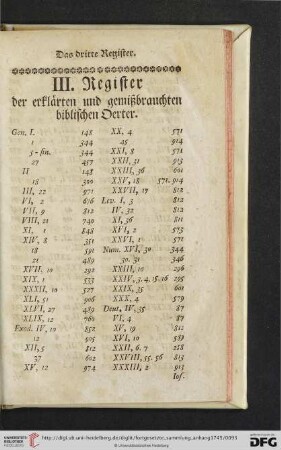 Das dritte Register.
III. Register
der erklärten und gemißbrauchten
biblischen Oerter.
Gen. I. 148
1 344
5 - fin. 344
27 457
II 148
18 300
III, 22 971
VI, 2 676
VII, 9 812
VIII, 21 740
XI, 1 848
XIV, 8 351
18 591
21 489
XVII, 10 292
XIX, 1 533
XXXII, 10 527
XLI, 51 906
XLVI, 27 489
XLIX, 12 760
Exod. IV, 10 852
12 505
XII, 5 812
37 602
XV, 12 974
XX, 4 571
25 914
XXI, 8 571
XXII, 31 913
XXIII, 36 601
XXV, 18 571. 914
XXVII, 17 818
Lev. I, 3 812
IV, 32 812
XI, 36 811
XVI, 2 573
XXVI, 1 571
Num. XVI, 30 344
30. 31 346
XXIII, 10 296
XXIV, 3. 4. 15. 16 295
XXIX, 35 601
XXX, 4 579
Deut. IV, 35 87
VI, 4 87
XV, 19 812
XVI, 10 601
XXII, 6. 7 218
XXVIII, 55. 56 813
XXXIII, 2 913
Jos.
UNIVERSITÄTS-
BIBLIOTHEK
HEIDELBERG
http://digi.ub.uni-heidelberg.de/diglit/fortgesetzte_sammlung_anhang1745/0093
© Universitätsbibliothek Heidelberg
gefördert durch die
DFG